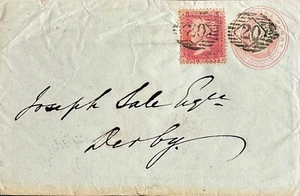 20
20
Joseph Sale Esqre
Derby